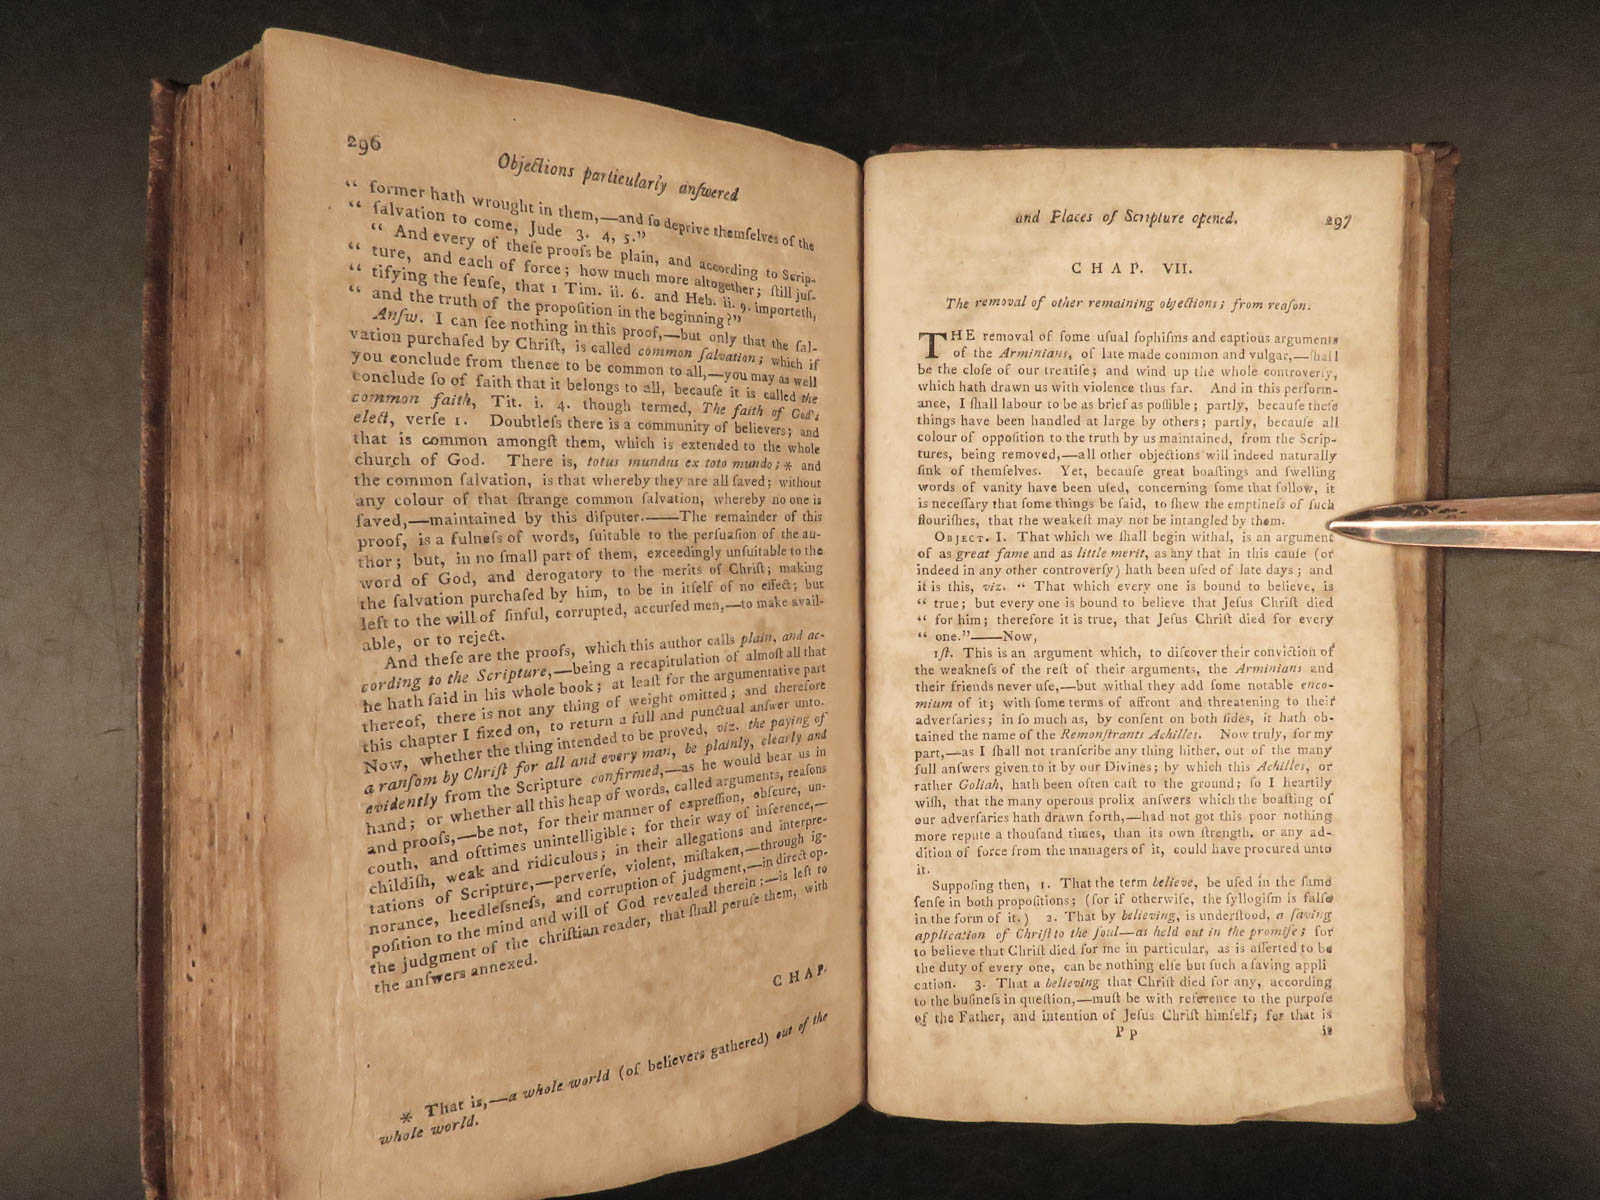 296
Objections particularly anſwered
“ former hath wrought in them,—and ſo deprive themſelves of the
“ ſalvation to come, Jude 3. 4, 5.”
“ And every of theſe proofs be plain, and according to Scrip-
“ ture, and each of force; how much more altogether; ſtill juſ-
“ tifying the ſenſe, that 1 Tim. ii. 6. and Heb. ii. 9. importeth,
“ and the truth of the propoſition in the beginning?”
Anſw. I can ſee nothing in this proof,—but only that the ſal-
vation purchaſed by Chriſt, is called common ſalvation; which if
you conclude from thence to be common to all,—you may as well
conclude ſo of faith that it belongs to all, becauſe it is called the
common faith, Tit. i. 4. though termed, The faith of God's
elect, verſe 1. Doubtleſs there is a community of believers; and
that is common amongſt them, which is extended to the whole
church of God. There is, totus mundus ex toto mundo;* and
the common ſalvation, is that whereby they are all ſaved; without
any colour of that ſtrange common ſalvation, whereby no one is
ſaved,—maintained by this diſputer.——The remainder of this
proof, is a fulneſs of words, ſuitable to the perſuaſion of the au-
thor; but, in no ſmall part of them, exceedingly unſuitable to the
word of God, and derogatory to the merits of Chriſt; making
the ſalvation purchaſed by him, to be in itſelf of no effect; but
left to the will of ſinful, corrupted, accurſed men,—to make avail-
able, or to reject.
And theſe are the proofs, which this author calls plain, and ac-
cording to the Scripture,—being a recapitulation of almoſt all that
he hath ſaid in his whole book; at leaſt for the argumentative part
thereof, there is not any thing of weight omitted; and therefore
this chapter I fixed on, to return a full and punctual anſwer unto.
Now, whether the thing intended to be proved, viz. the paying of
a ranſom by Chriſt for all and every man, be plainly, clearly and
evidently from the Scripture confirmed,—as he would bear us in
hand; or whether all this heap of words, called arguments, reaſons
and proofs,—be not, for their manner of expreſſion, obſcure, un-
couth, and ofttimes unintelligible; for their way of inference,—
childiſh, weak and ridiculous; in their allegations and interpre-
tations of Scripture,—perverſe, violent, miſtaken,—through ig-
norance, heedleſsneſs, and corruption of judgment,—in direct op-
poſition to the mind and will of God revealed therein;—is left to
the judgment of the chriſtian reader, that ſhall peruſe them, with
the anſwers annexed.
CHAP.
* That is,—a whole world (of believers gathered) out of the
whole world.
and Places of Scripture opened.
297
CHAP. VII.
The removal of other remaining objections; from reaſon.
THE removal of ſome uſual ſophiſms and captious arguments
of the Arminians, of late made common and vulgar,—ſhall
be the cloſe of our treatiſe; and wind up the whole controverſy,
which hath drawn us with violence thus far. And in this perform-
ance, I ſhall labour to be as brief as poſſible; partly, becauſe theſe
things have been handled at large by others; partly, becauſe all
colour of oppoſition to the truth by us maintained, from the Scrip-
tures, being removed,—all other objections will indeed naturally
ſink of themſelves. Yet, becauſe great boaſtings and ſwelling
words of vanity have been uſed, concerning ſome that follow, it
is neceſſary that ſome things be ſaid, to ſhew the emptineſs of ſuch
flouriſhes, that the weakeſt may not be intangled by them.
OBJECT. I. That which we ſhall begin withal, is an argument
of as great fame and as little merit, as any that in this cauſe (or
indeed in any other controverſy) hath been uſed of late days; and
it is this, viz. “ That which every one is bound to believe, is
“ true; but every one is bound to believe that Jeſus Chriſt died
“ for him; therefore it is true, that Jeſus Chriſt died for every
“ one.”——Now,
1ſt. This is an argument which, to diſcover their conviction of
the weakneſs of the reſt of their arguments, the Arminians and
their friends never uſe,—but withal they add ſome notable enco-
mium of it; with ſome terms of affront and threatening to their
adverſaries; in ſo much as, by conſent on both ſides, it hath ob-
tained the name of the Remonſtrants Achilles. Now truly, for my
part,—as I ſhall not tranſcribe any thing hither, out of the many
full anſwers given to it by our Divines; by which this Achilles, or
rather Goliah, hath been often caſt to the ground; ſo I heartily
wiſh, that the many operous prolix anſwers which the boaſting of
our adverſaries hath drawn forth,—had not got this poor nothing
more repute a thouſand times, than its own ſtrength, or any ad-
dition of force from the managers of it, could have procured unto
it.
Suppoſing then, 1. That the term believe, be uſed in the ſame
ſenſe in both propoſitions; (for if otherwiſe, the ſyllogiſm is falſe
in the form of it.) 2. That by believing, is underſtood, a ſaving
application of Chriſt to the ſoul—as held out in the promiſe; for
to believe that Chriſt died for me in particular, as is aſſerted to be
the duty of every one, can be nothing elſe but ſuch a ſaving appli
cation. 3. That a believing that Chriſt died for any, according
to the buſineſs in queſtion,—muſt be with reference to the purpoſe
of the Father, and intention of Jeſus Chriſt himſelf; for that is
P p
is